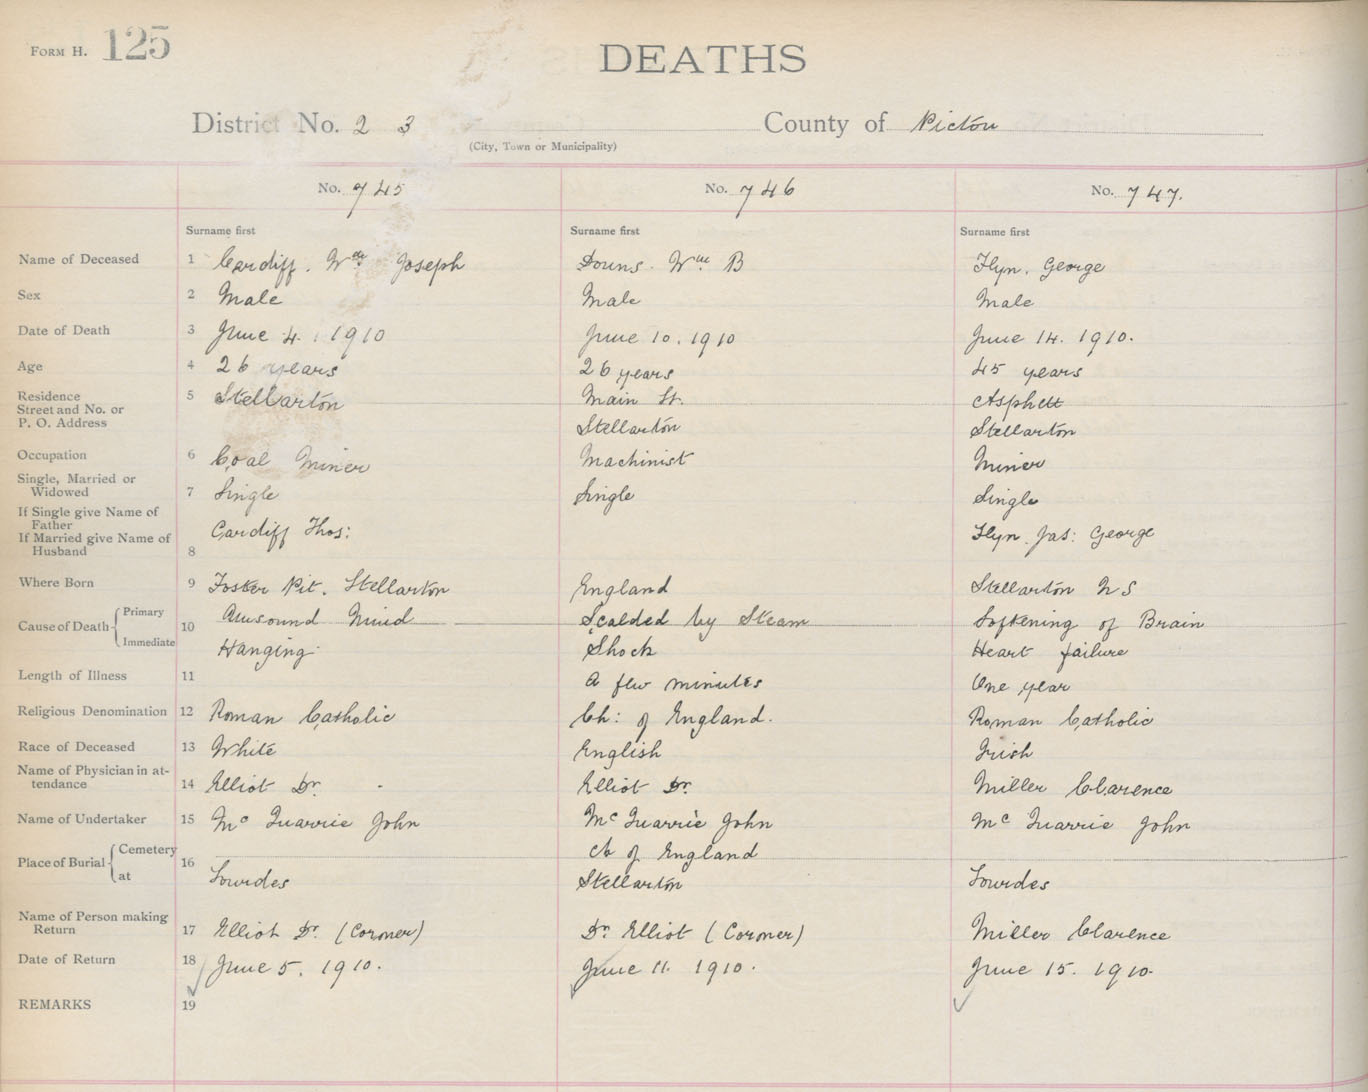 FORM H. 125
DEATHS
District No. 2 3 County of Pictou
(City, Town or Municipality)
No. 745 No. 746 No. 747.
Surname first Surname first Surname first
Name of Deceased 1 Cardiff. Wm Joseph Douns. Wm B Flyn. George
Sex 2 Male Male Male
Date of Death 3 June 4. 1910 June 10. 1910 June 14. 1910.
Age 4 26 years 26 years 45 years
Residence 5 Stellarton Main St. Asphelt
Street and No. or
P. O. Address Stellarton Stellarton
Occupation 6 Coal Miner Machinist Miner
Single, Married or
Widowed 7 Single Single Single
If Single give Name of
Father Cardiff Thos: Flyn. Jas: George
If Married give Name of
Husband 8
Where Born 9 Foster Pit. Stellarton England Stellarton N S
Cause of Death Primary 10 Unsound Mind Scalded by Steam Softening of Brain
Immediate Hanging Shock Heart failure
Length of Illness 11 A few minutes One year
Religious Denomination 12 Roman Catholic Ch: of England. Roman Catholic
Race of Deceased 13 White English Irish
Name of Physician in at-
tendance 14 Elliot Dr. Elliot Dr. Miller Clarence
Name of Undertaker 15 Mc Quarrie John Mc Quarrie John Mc Quarrie John
Place of Burial Cemetery 16 Ch of England
at Lourdes Stellarton Lourdes
Name of Person making
Return 17 Elliot Dr. (Coroner) Dr. Elliot (Coroner) Miller Clarence
Date of Return 18 June 5. 1910. June 11. 1910. June 15. 1910.
REMARKS 19